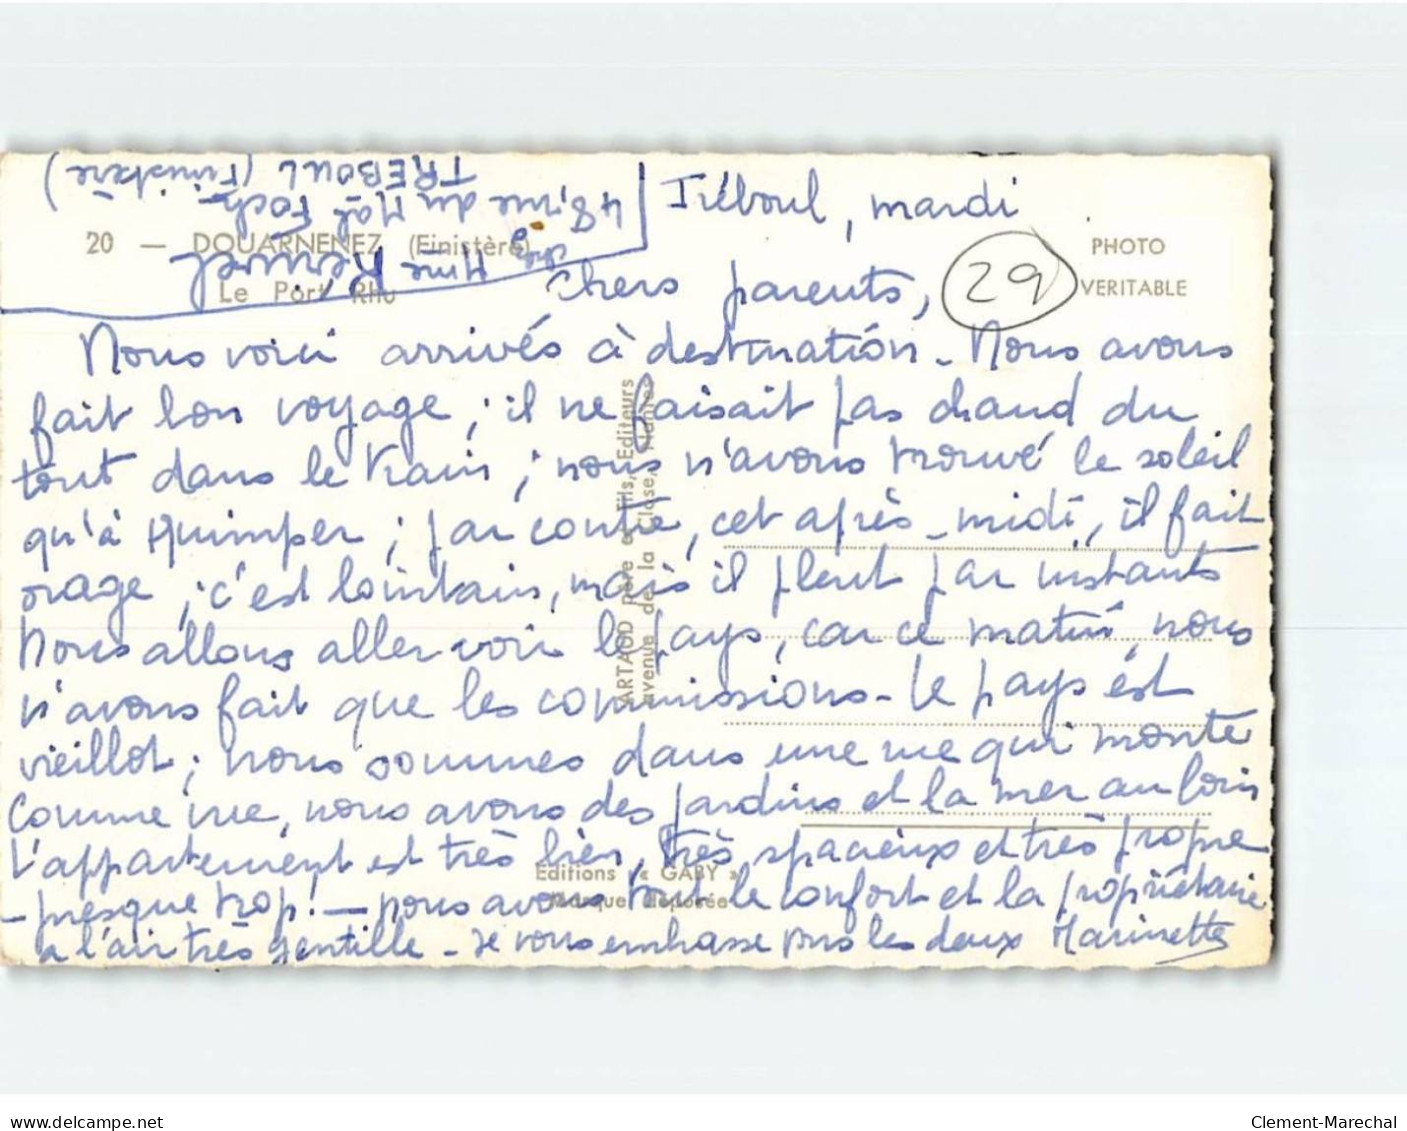 Tréboul, mardi
chez Mme
48, rue du Mal Foch
TREBOUL (Finistère)
20 — DOUARNENEZ (Finistère)
Le Port Rhu
PHOTO
VERITABLE
29
Chers parents,
Nous voici arrivés à destination. Nous avons
fait bon voyage ; il ne faisait pas chaud du
tout dans le train ; nous n'avons trouvé le soleil
qu'à Quimper ; par contre, cet après-midi, il fait
orage ; c'est lointain, mais il pleut par instants
Nous allons aller voir le pays, car ce matin, nous
n'avons fait que les commissions. Le pays est
vieillot ; nous sommes dans une rue qui monte
Comme vue, nous avons des jardins et la mer au loin
L'appartement est très bien, très spacieux et très propre
— presque trop ! — nous avons tout le confort et la propriétaire
a l'air très gentille. Je vous embrasse tous les deux Marinette
ARTAUD père et fils, Editeurs
avenue de la Close, Nantes
Editions « GABY »
Marque déposée
www.delcampe.net
Clement-Marechal